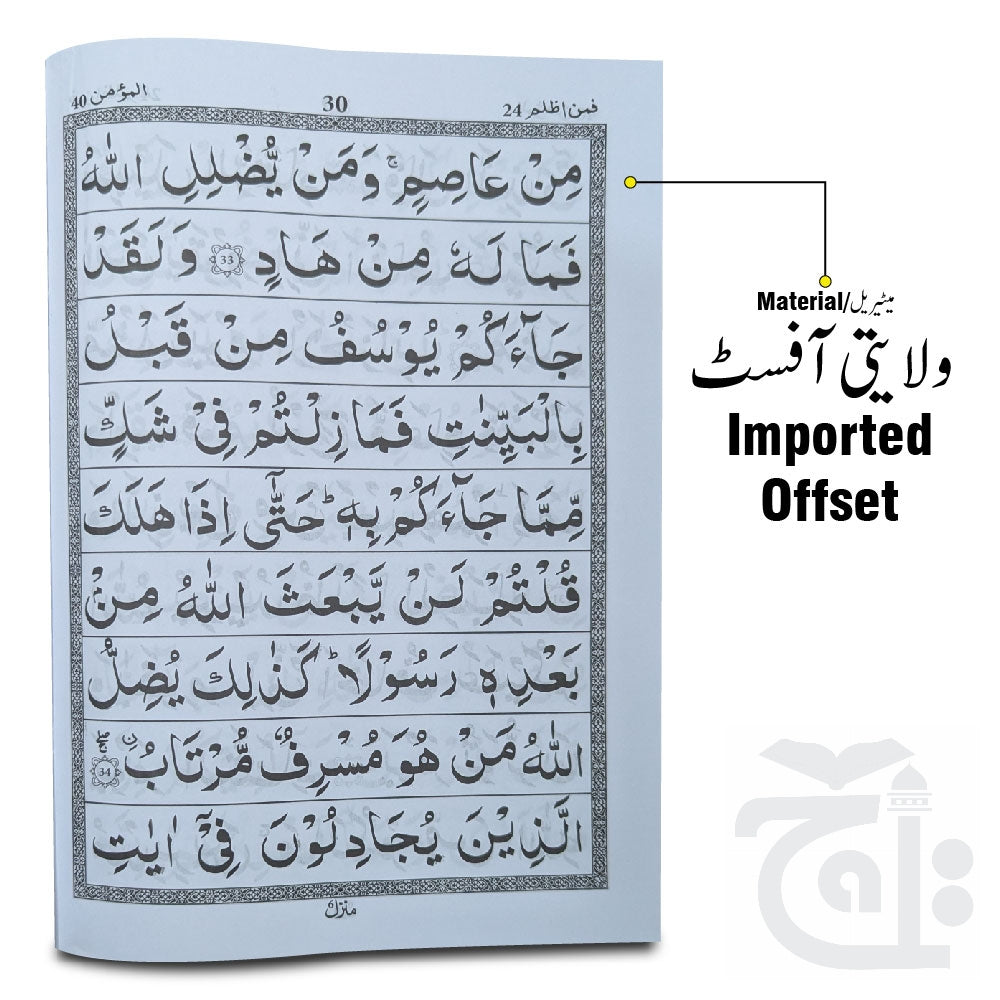 المؤمن 40
30
فمن اظلم 24
مِنْ عَاصِمٍ ۚ وَمَنْ يُّضْلِلِ اللّٰهُ
فَمَا لَهٗ مِنْ هَادٍ 33 وَلَقَدْ
جَآءَكُمْ يُوْسُفُ مِنْ قَبْلُ
بِالْبَيِّنٰتِ فَمَا زِلْتُمْ فِيْ شَكٍّ
مِّمَّا جَآءَكُمْ بِهٖ ؕ حَتّٰۤى اِذَا هَلَكَ
قُلْتُمْ لَنْ يَّبْعَثَ اللّٰهُ مِنْۢ
بَعْدِهٖ رَسُوْلًا ؕ كَذٰلِكَ يُضِلُّ
اللّٰهُ مَنْ هُوَ مُسْرِفٌ مُّرْتَابُ 34
الَّذِيْنَ يُجَادِلُوْنَ فِيْۤ اٰيٰتِ
Material/میٹیریل
ولایتی آفسٹ
Imported
Offset